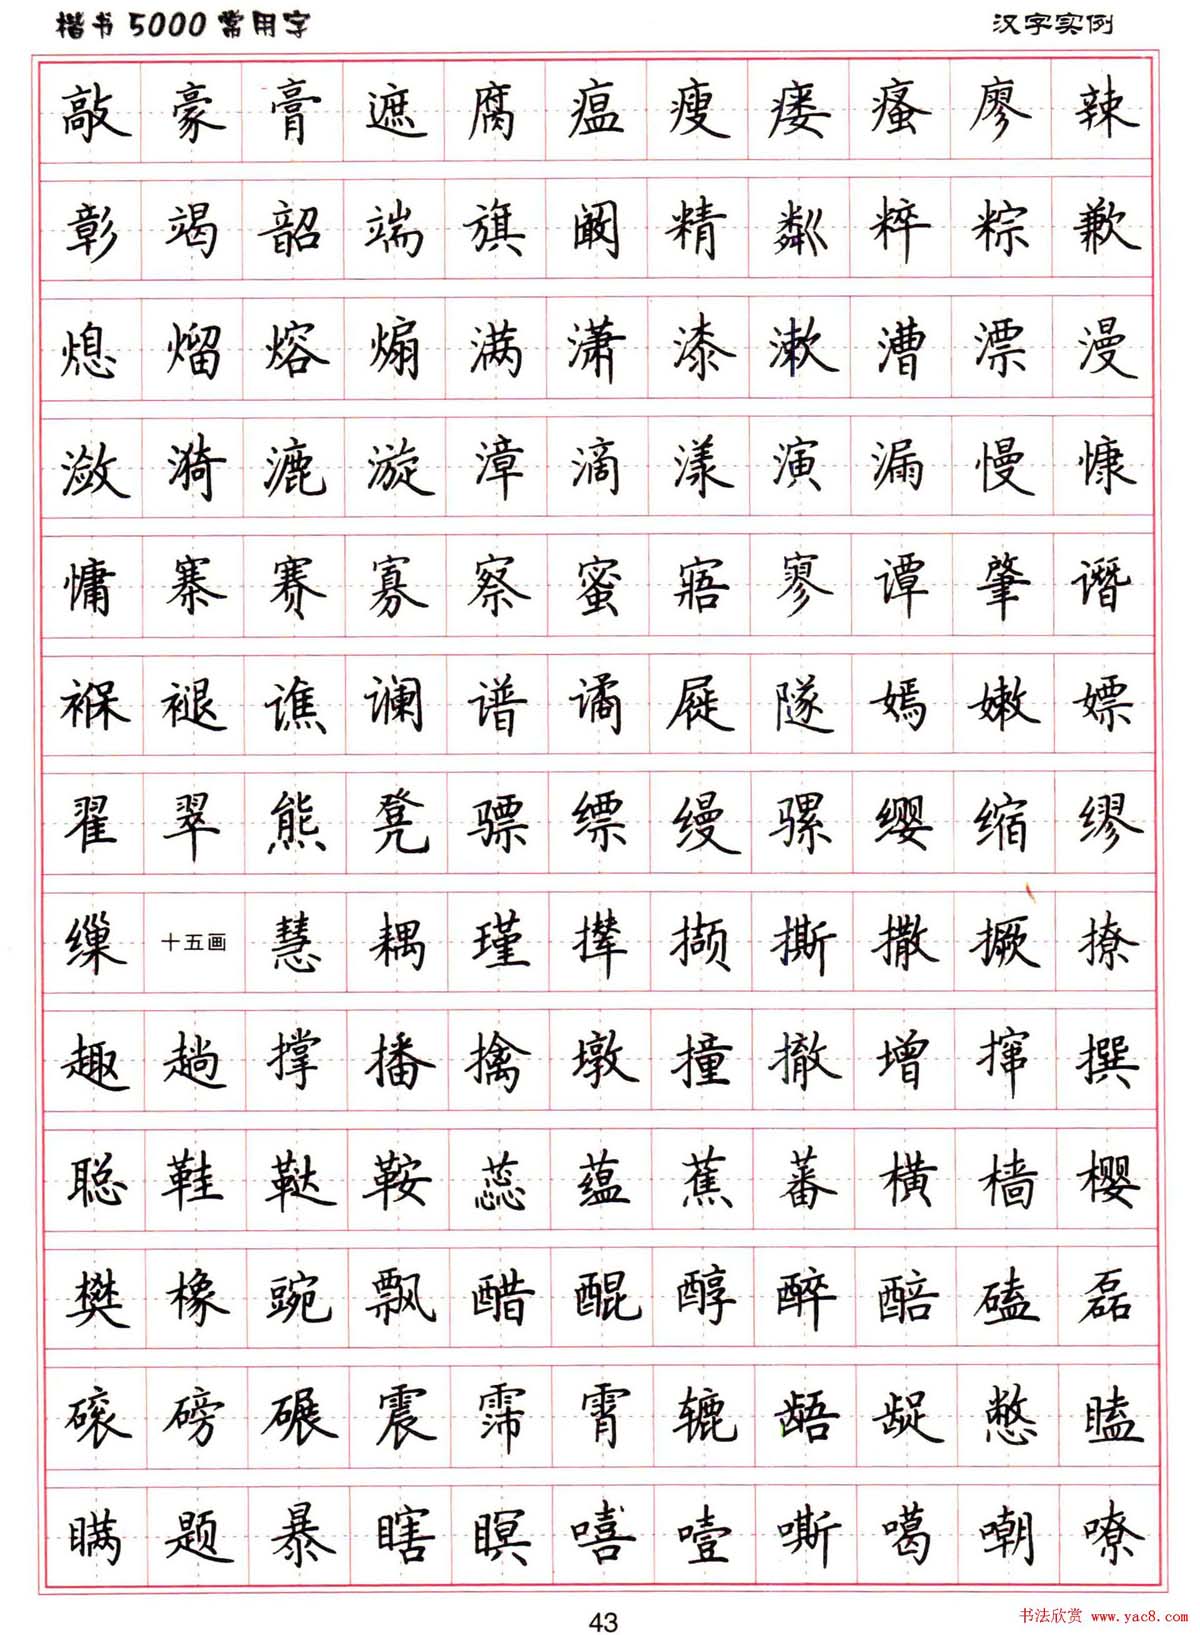 楷书5000常用字 汉字实例
敲 豪 膏 遮 腐 瘟 瘦 瘘 瘙 廖 辣
彰 竭 韶 端 旗 阚 精 粼 粹 粽 歉
熄 熘 熔 煽 满 潇 漆 漱 漕 漂 漫
潋 漪 漉 漩 漳 滴 漾 演 漏 慢 慷
慵 寨 赛 寡 察 蜜 寤 寥 谭 肇 谮
褓 褪 谯 谰 谱 谲 屣 隧 嫣 嫩 嫖
翟 翠 熊 凳 骠 缥 缦 骡 缨 缩 缪
缫 十五画 慧 耦 瑾 撵 撷 撕 撒 撅 撩
趣 趟 撑 播 擒 墩 撞 撤 增 撺 撰
聪 鞋 鞑 鞍 蕊 蕴 蕉 蕃 横 樯 樱
樊 橡 豌 飘 醋 醌 醇 醉 醅 磕 磊
磙 磅 碾 震 霈 霄 辘 龉 龊 憋 瞌
瞒 题 暴 瞎 瞑 嘻 噎 嘶 噶 嘲 嘹
43
书法欣赏 www.yac8.com